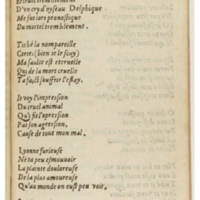 D'vn cry d'oyseau Delphique
Me fut lors pronostique
Du mortel tremblement.
Tis bé la nompareille
Certes bien se le sçay
Ma faulte est cruelle
Qui de la mort cruelle
Ta faict souffrir l'essay.
Ie voy l'impression
Du cruel animal
Qui fit l'apression
Par son agression,
Cause de tout mon mal.
Lyonne furieuse
Ne ta peu esmouuoir
La plainte douloreuse
De la plus amoureuse
Qu'au monde on eust peu voir.